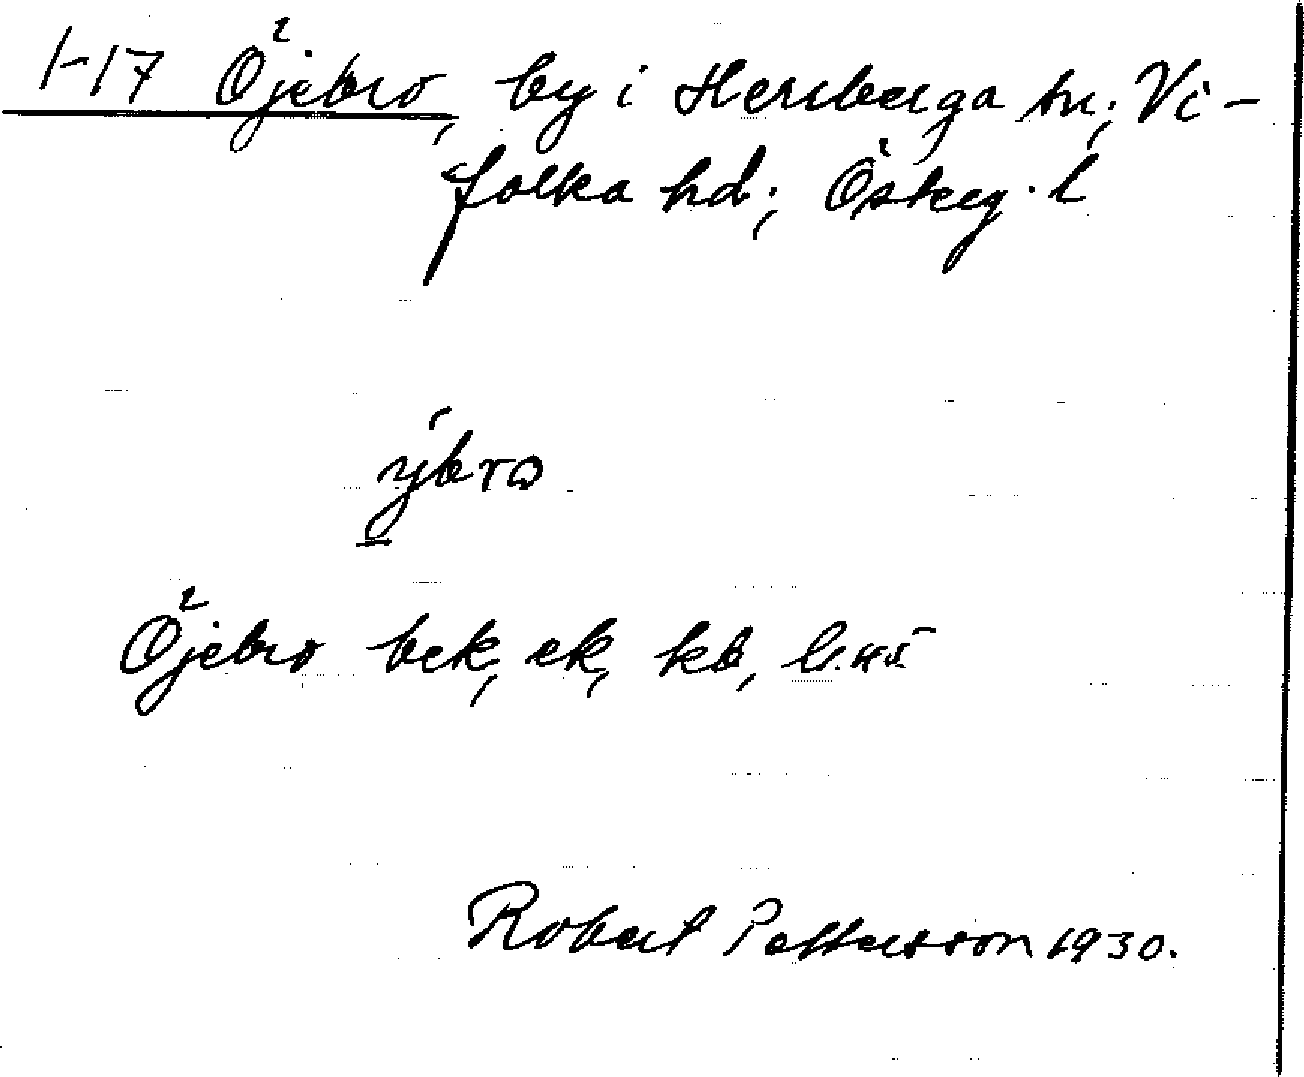 1-17 Öjebro, by i Herrberga sn; Vi-
folka hd; Österg. l
Öjebro bek, ek, kb,
Robert Pettersson 1930.